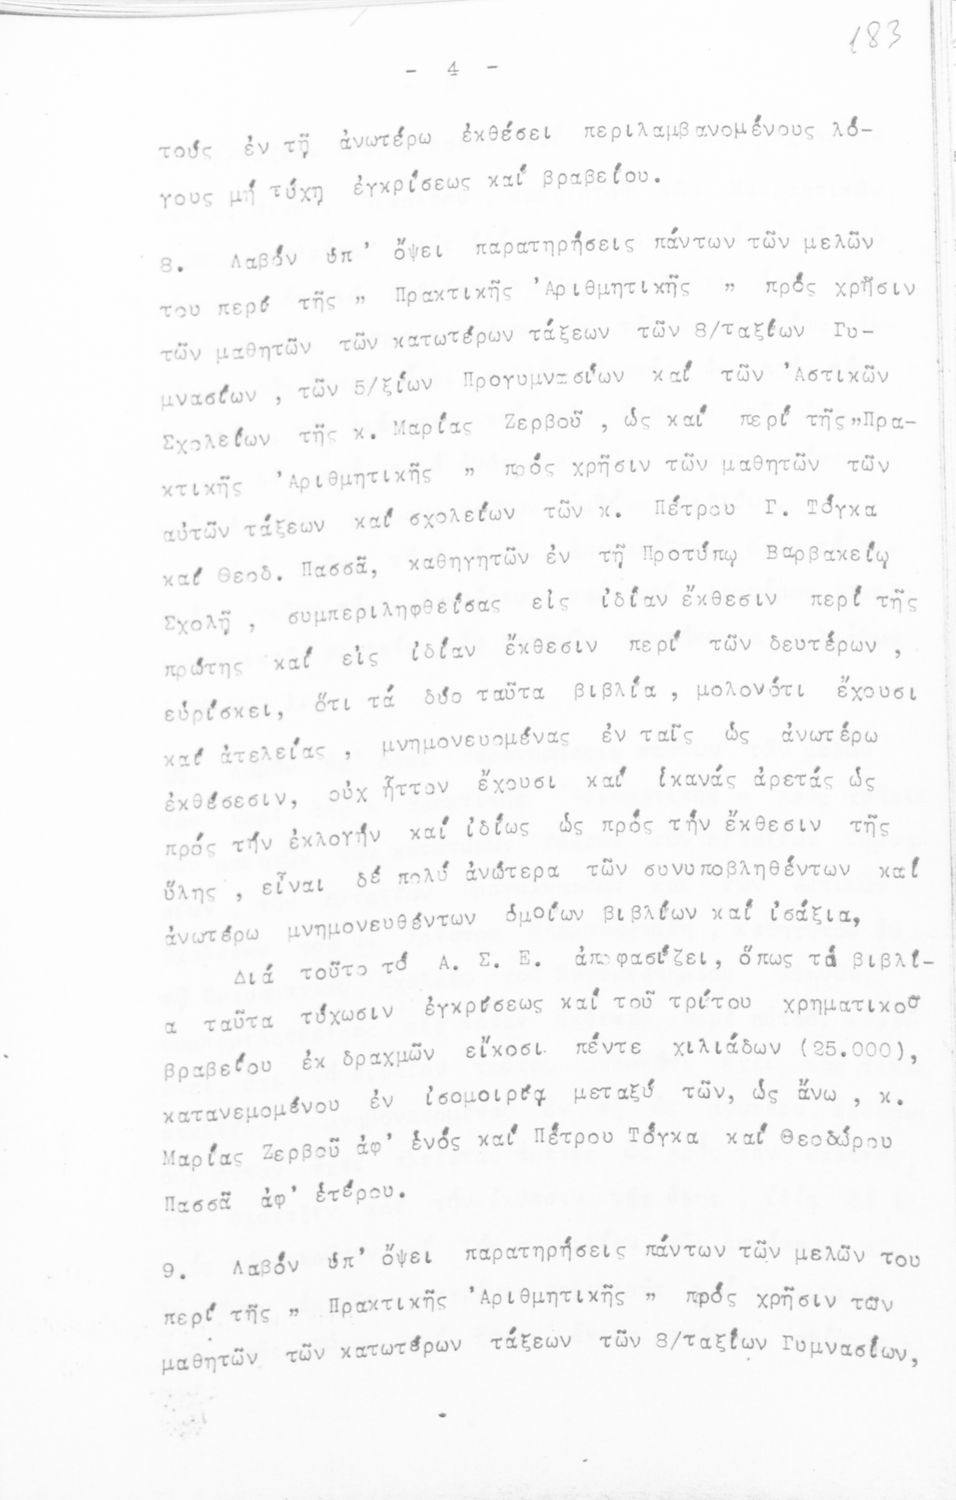 183
- 4 -
τούς ἐν τῇ ἀνωτέρω ἐκθέσει περιλαμβανομένους λό-
γους μή τύχῃ ἐγκρίσεως καί βραβείου.
8. Λαβόν ὑπ' ὄψει παρατηρήσεις πάντων τῶν μελῶν
του περί τῆς " Πρακτικῆς Ἀριθμητικῆς " πρός χρῆσιν
τῶν μαθητῶν τῶν κατωτέρων τάξεων τῶν 8/ταξίων Γυ-
μνασίων , τῶν 5/ξίων Προγυμνασίων καί τῶν Ἀστικῶν
Σχολείων τῆς κ. Μαρίας Ζερβοῦ , ὡς καί περί τῆς "Πρα-
κτικῆς Ἀριθμητικῆς " πρός χρῆσιν τῶν μαθητῶν τῶν
αὐτῶν τάξεων καί σχολείων τῶν κ. Πέτρου Γ. Τόγκα
καί Θεοδ. Πασσᾶ, καθηγητῶν ἐν τῇ Προτύπῳ Βαρβακείῳ
Σχολῇ , συμπεριληφθείσας εἰς ἰδίαν ἔκθεσιν περί τῆς
πρώτης καί εἰς ἰδίαν ἔκθεσιν περί τῶν δευτέρων ,
εὑρίσκει, ὅτι τά δύο ταῦτα βιβλία , μολονότι ἔχουσι
καί ἀτελείας , μνημονευομένας ἐν ταῖς ὡς ἀνωτέρω
ἐκθέσεσιν, οὐχ ἧττον ἔχουσι καί ἱκανάς ἀρετάς ὡς
πρός τήν ἐκλογήν καί ἰδίως ὡς πρός τήν ἔκθεσιν τῆς
ὕλης , εἶναι δέ πολύ ἀνώτερα τῶν συνυποβληθέντων καί
ἀνωτέρω μνημονευθέντων ὁμοίων βιβλίων καί ἰσάξια,
Διά τοῦτο τό Α. Σ. Ε. ἀποφασίζει, ὅπως τά βιβλί-
α ταῦτα τύχωσιν ἐγκρίσεως καί τοῦ τρίτου χρηματικοῦ
βραβείου ἐκ δραχμῶν εἴκοσι πέντε χιλιάδων (25.000),
κατανεμομένου ἐν ἰσομοιρίᾳ μεταξύ τῶν, ὡς ἄνω , κ.
Μαρίας Ζερβοῦ ἀφ' ἑνός καί Πέτρου Τόγκα καί Θεοδώρου
Πασσᾶ ἀφ' ἑτέρου.
9. Λαβόν ὑπ' ὄψει παρατηρήσεις πάντων τῶν μελῶν του
περί τῆς " Πρακτικῆς Ἀριθμητικῆς " πρός χρῆσιν τῶν
μαθητῶν τῶν κατωτέρων τάξεων τῶν 8/ταξίων Γυμνασίων,